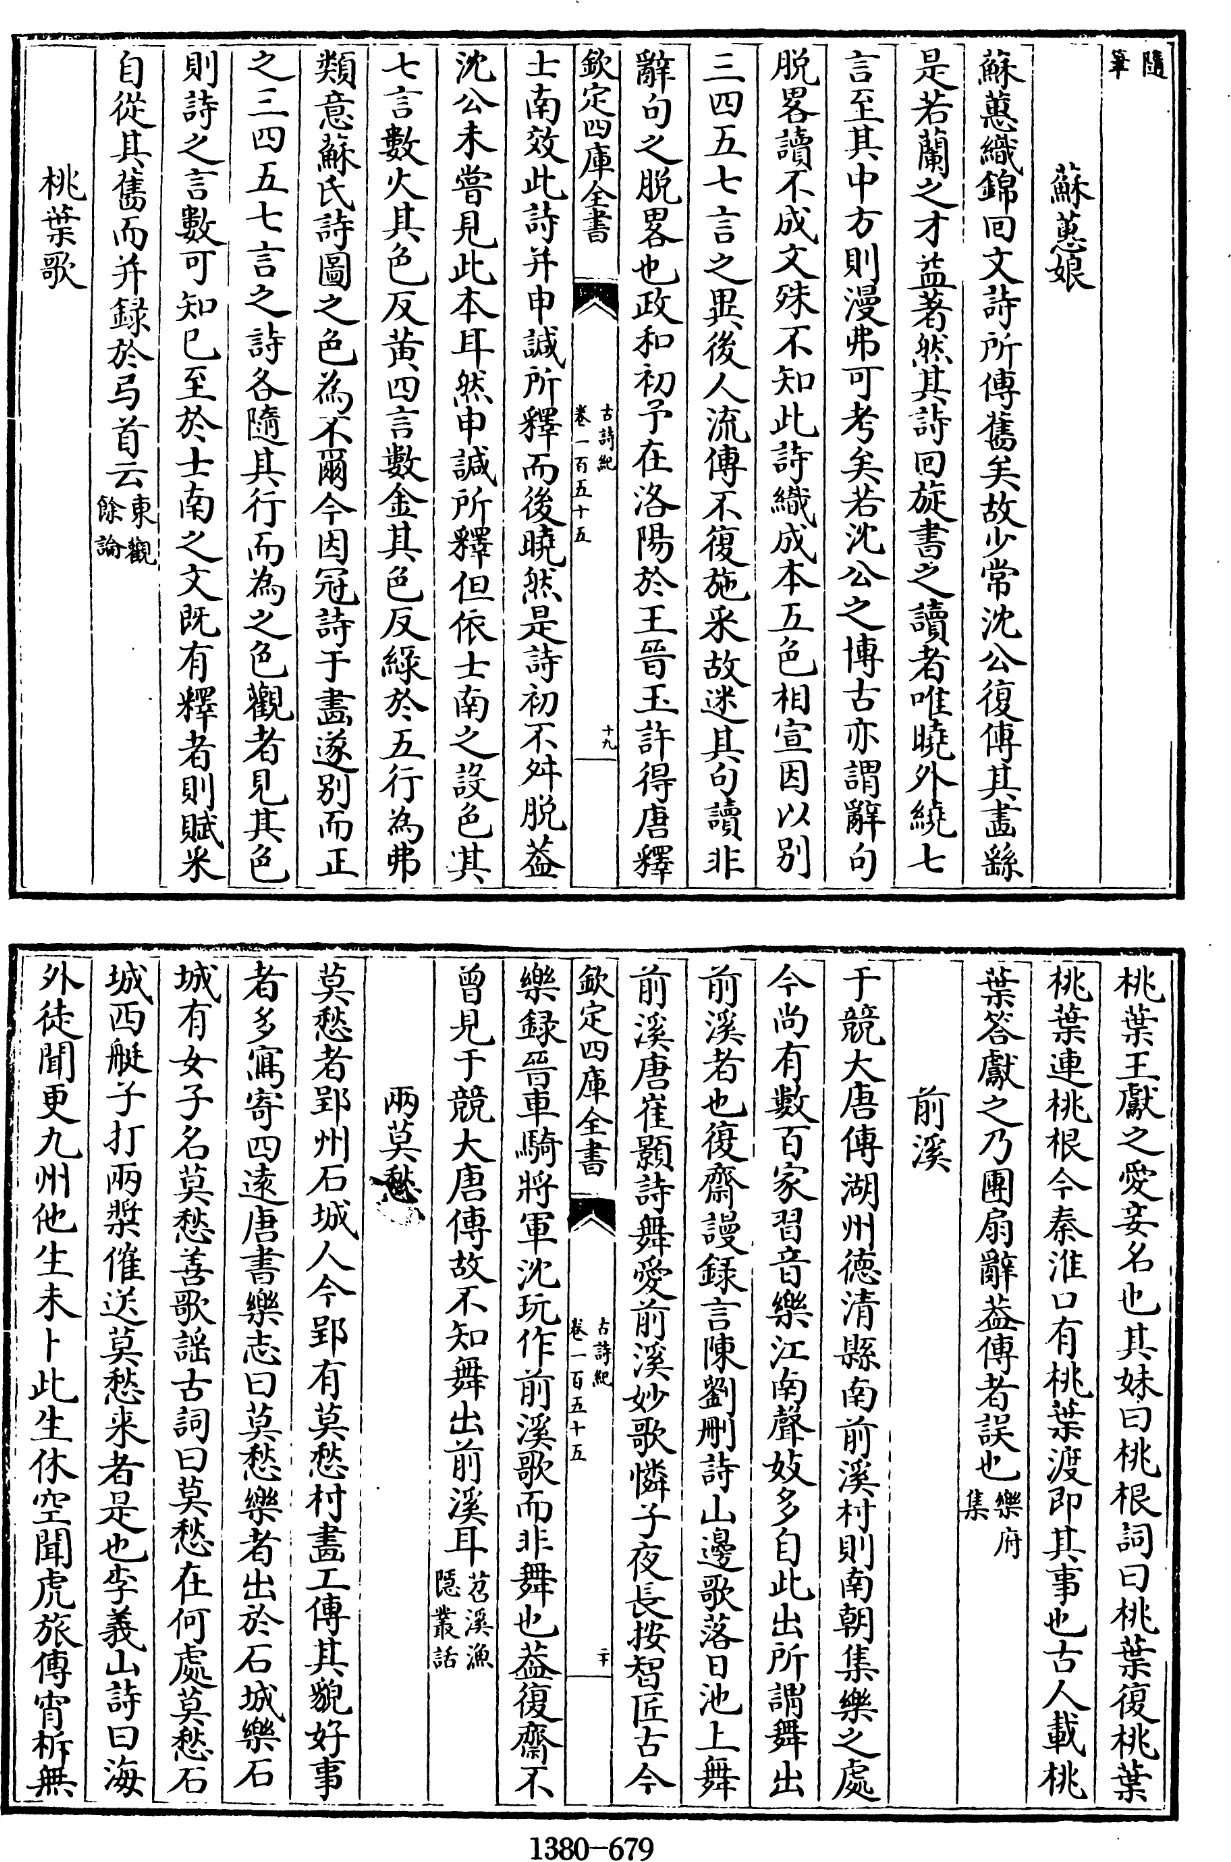 隨筆
蘇蕙娘
蘇蕙織錦回文詩所傳舊矣故少常沈公復傳其畫繇
是若蘭之才益著然其詩回旋書之讀者唯曉外繞七
言至其中方則漫弗可考矣若沈公之博古亦謂辭句
脱畧讀不成文殊不知此詩織成本五色相宣因以别
三四五七言之異後人流傳不復施采故迷其句讀非
辭句之脱畧也政和初予在洛陽於王晉玉許得唐釋
欽定四庫全書
古詩紀
卷一百五十五
十九
士南效此詩并申諴所釋而後曉然是詩初不舛脱葢
沈公未嘗見此本耳然申諴所釋但依士南之設色其
七言數火其色反黄四言數金其色反緑於五行為弗
類意蘇氏詩圖之色為不爾今因冠詩于畫遂别而正
之三四五七言之詩各隨其行而為之色觀者見其色
則詩之言數可知已至於士南之文既有釋者則賦采
自從其舊而并録於弓首云東觀餘論
桃葉歌
桃葉王獻之愛妾名也其妹曰桃根詞曰桃葉復桃葉
桃葉連桃根今秦淮口有桃葉渡即其事也古人載桃
葉答獻之乃團扇辭葢傳者誤也樂府集
前溪
于競大唐傳湖州德清縣南前溪村則南朝集樂之處
今尚有數百家習音樂江南聲妓多自此出所謂舞出
前溪者也復齋謾録言陳劉刪詩山邊歌落日池上舞
前溪唐崔顥詩舞愛前溪妙歌憐子夜長按智匠古今
欽定四庫全書
古詩紀
卷一百五十五
二十
樂録晉車騎將軍沈玩作前溪歌而非舞也葢復齋不
曾見于競大唐傳故不知舞出前溪耳苕溪漁隱叢話
兩莫愁
莫愁者郢州石城人今郢有莫愁村畫工傳其貌好事
者多寫寄四遠唐書樂志曰莫愁樂者出於石城樂石
城有女子名莫愁善歌謡古詞曰莫愁在何處莫愁石
城西艇子打兩槳催送莫愁来者是也李義山詩曰海
外徒聞更九州他生未卜此生休空聞虎旅傳宵柝無
1380-679